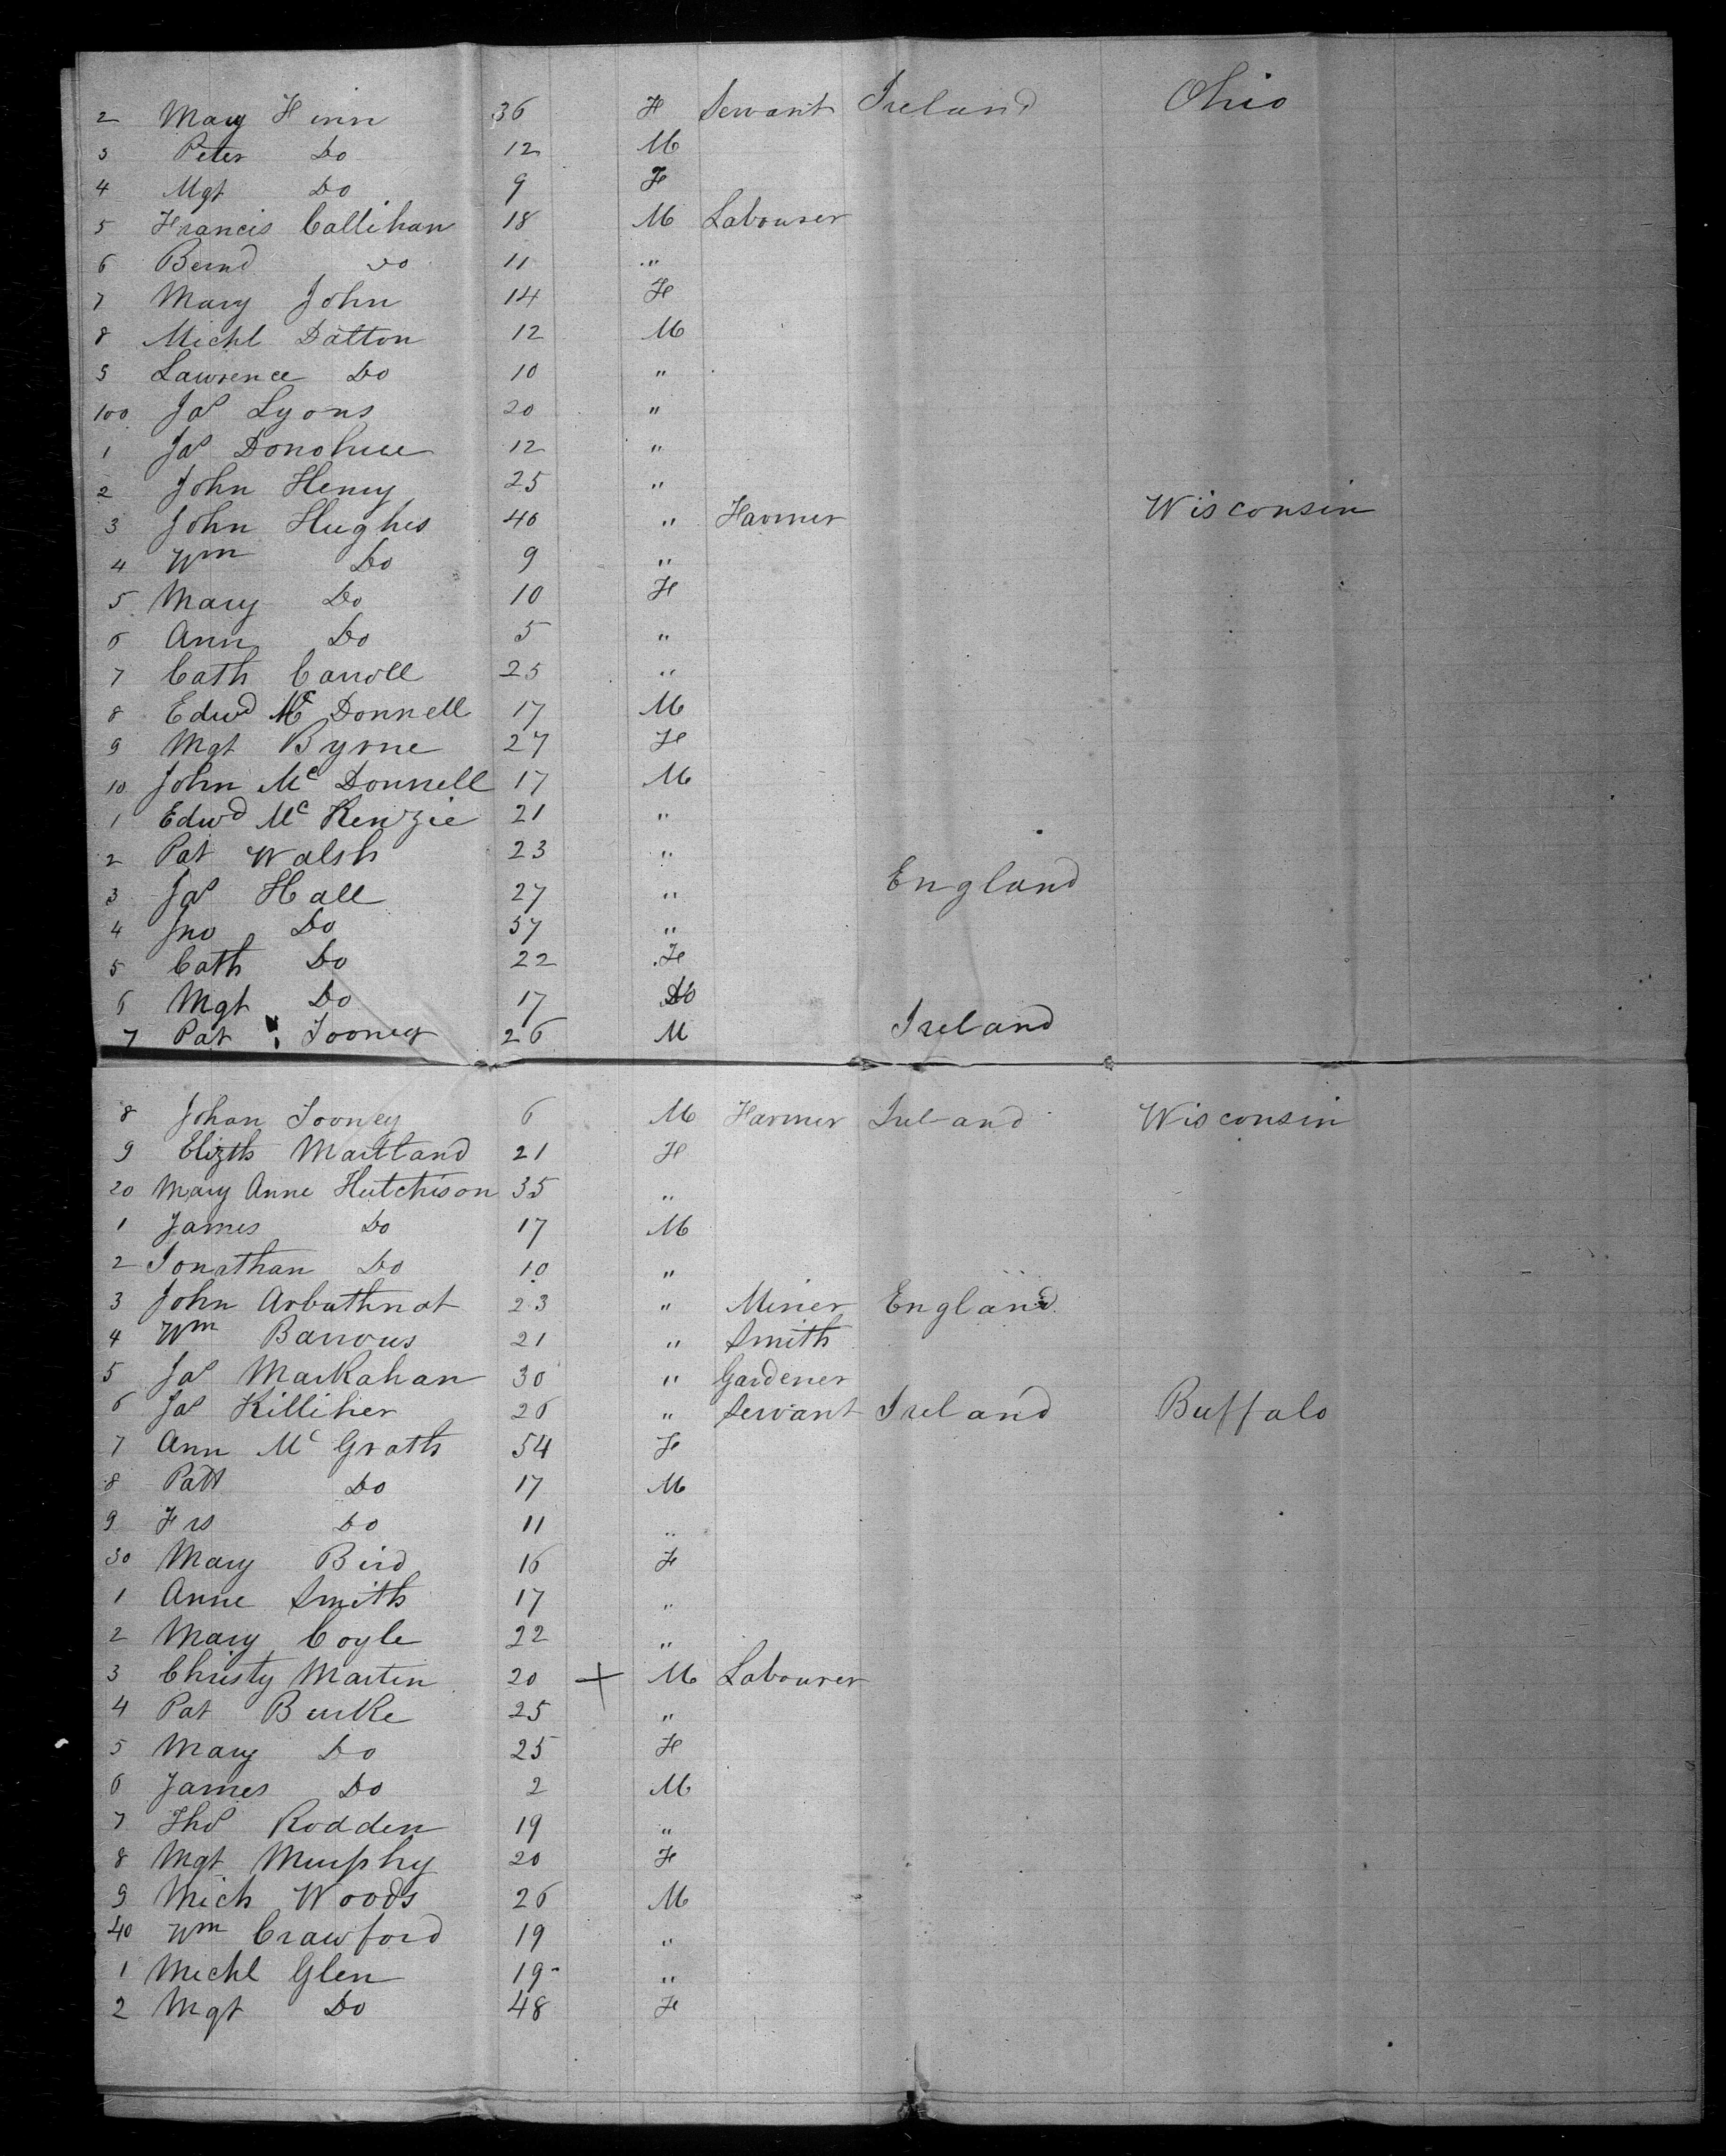 2 Mary Finn 36 F Servant Ireland Ohio
3 Peter Do 12 M
4 Mgt Do 9 F
5 Francis Callihan 18 M Labourer
6 Bernd Do 11 "
7 Mary John 14 F
8 Michl Dalton 12 M
9 Lawrence Do 10 "
100 Jas Lyons 20 "
1 Jas Donohue 12 "
2 John Henry 25 "
3 John Hughes 40 " Farmer Wisconsin
4 Wm Do 9 "
5 Mary Do 10 F
6 Ann Do 5 "
7 Cath Carroll 25 "
8 Edwd Mc Donnell 17 M
9 Mgt Byrne 27 F
10 John Mc Donnell 17 M
1 Edwd Mc Kenzie 21 "
2 Pat Walsh 23 "
3 Jas Hall 27 " England
4 Jno Do 57 "
5 Cath Do 22 F
6 Mgt Do 17 Do
7 Pat Tooney 26 M Ireland
8 Johan Tooney 6 M Farmer Ireland Wisconsin
9 Elizth Maitland 21 F
20 Mary Anne Hutchison 35 "
1 James Do 17 M
2 Jonathan Do 10 "
3 John Arbuthnot 23 " Miner England
4 Wm Barrows 21 " Smith
5 Jas Markahan 30 " Gardener
6 Jas Killiher 26 " Servant Ireland Buffalo
7 Ann Mc Grath 54 F
8 Patt Do 17 M
9 Frs Do 11 "
30 Mary Bird 16 F
1 Anne Smith 17 "
2 Mary Coyle 22 "
3 Christy Martin 20 + M Labourer
4 Pat Burke 25 "
5 Mary Do 25 F
6 James Do 2 M
7 Thos Rodden 19 "
8 Mgt Murphy 20 F
9 Mich Woods 26 M
40 Wm Crawford 19 "
1 Michl Glen 19 "
2 Mgt Do 48 F